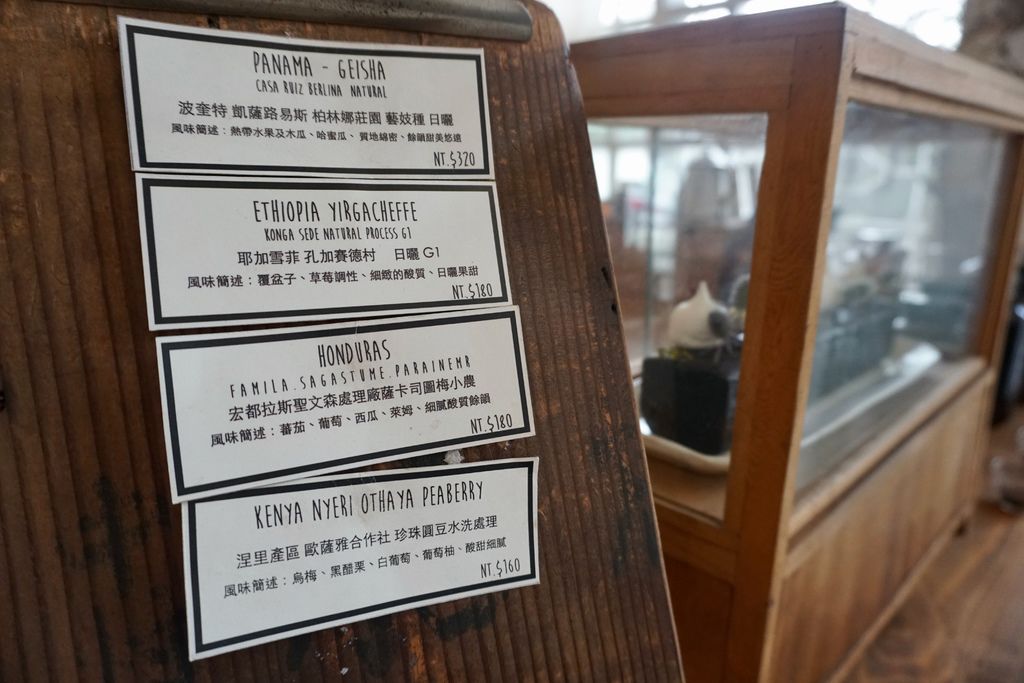 PANAMA - GEISHA
CASA RUIZ BERLINA NATURAL
波奎特 凱薩路易斯 柏林娜莊園 藝妓種 日曬
風味簡述：熱帶水果及木瓜、哈蜜瓜、質地綿密、餘韻甜美悠遠
NT.$320
ETHIOPIA YIRGACHEFFE
KONGA SEDE NATURAL PROCESS G1
耶加雪菲 孔加賽德村 日曬 G1
風味簡述：覆盆子、草莓調性、細緻的酸質、日曬果甜
NT.$180
HONDURAS
FAMILA.SAGASTUME.PARAINEMR
宏都拉斯聖文森處理廠薩卡司圖梅小農
風味簡述：蕃茄、葡萄、西瓜、萊姆、細膩酸質餘韻
NT.$180
KENYA NYERI OTHAYA PEABERRY
涅里產區 歐薩雅合作社 珍珠圓豆水洗處理
風味簡述：烏梅、黑醋栗、白葡萄、葡萄柚、酸甜細膩
NT.$160